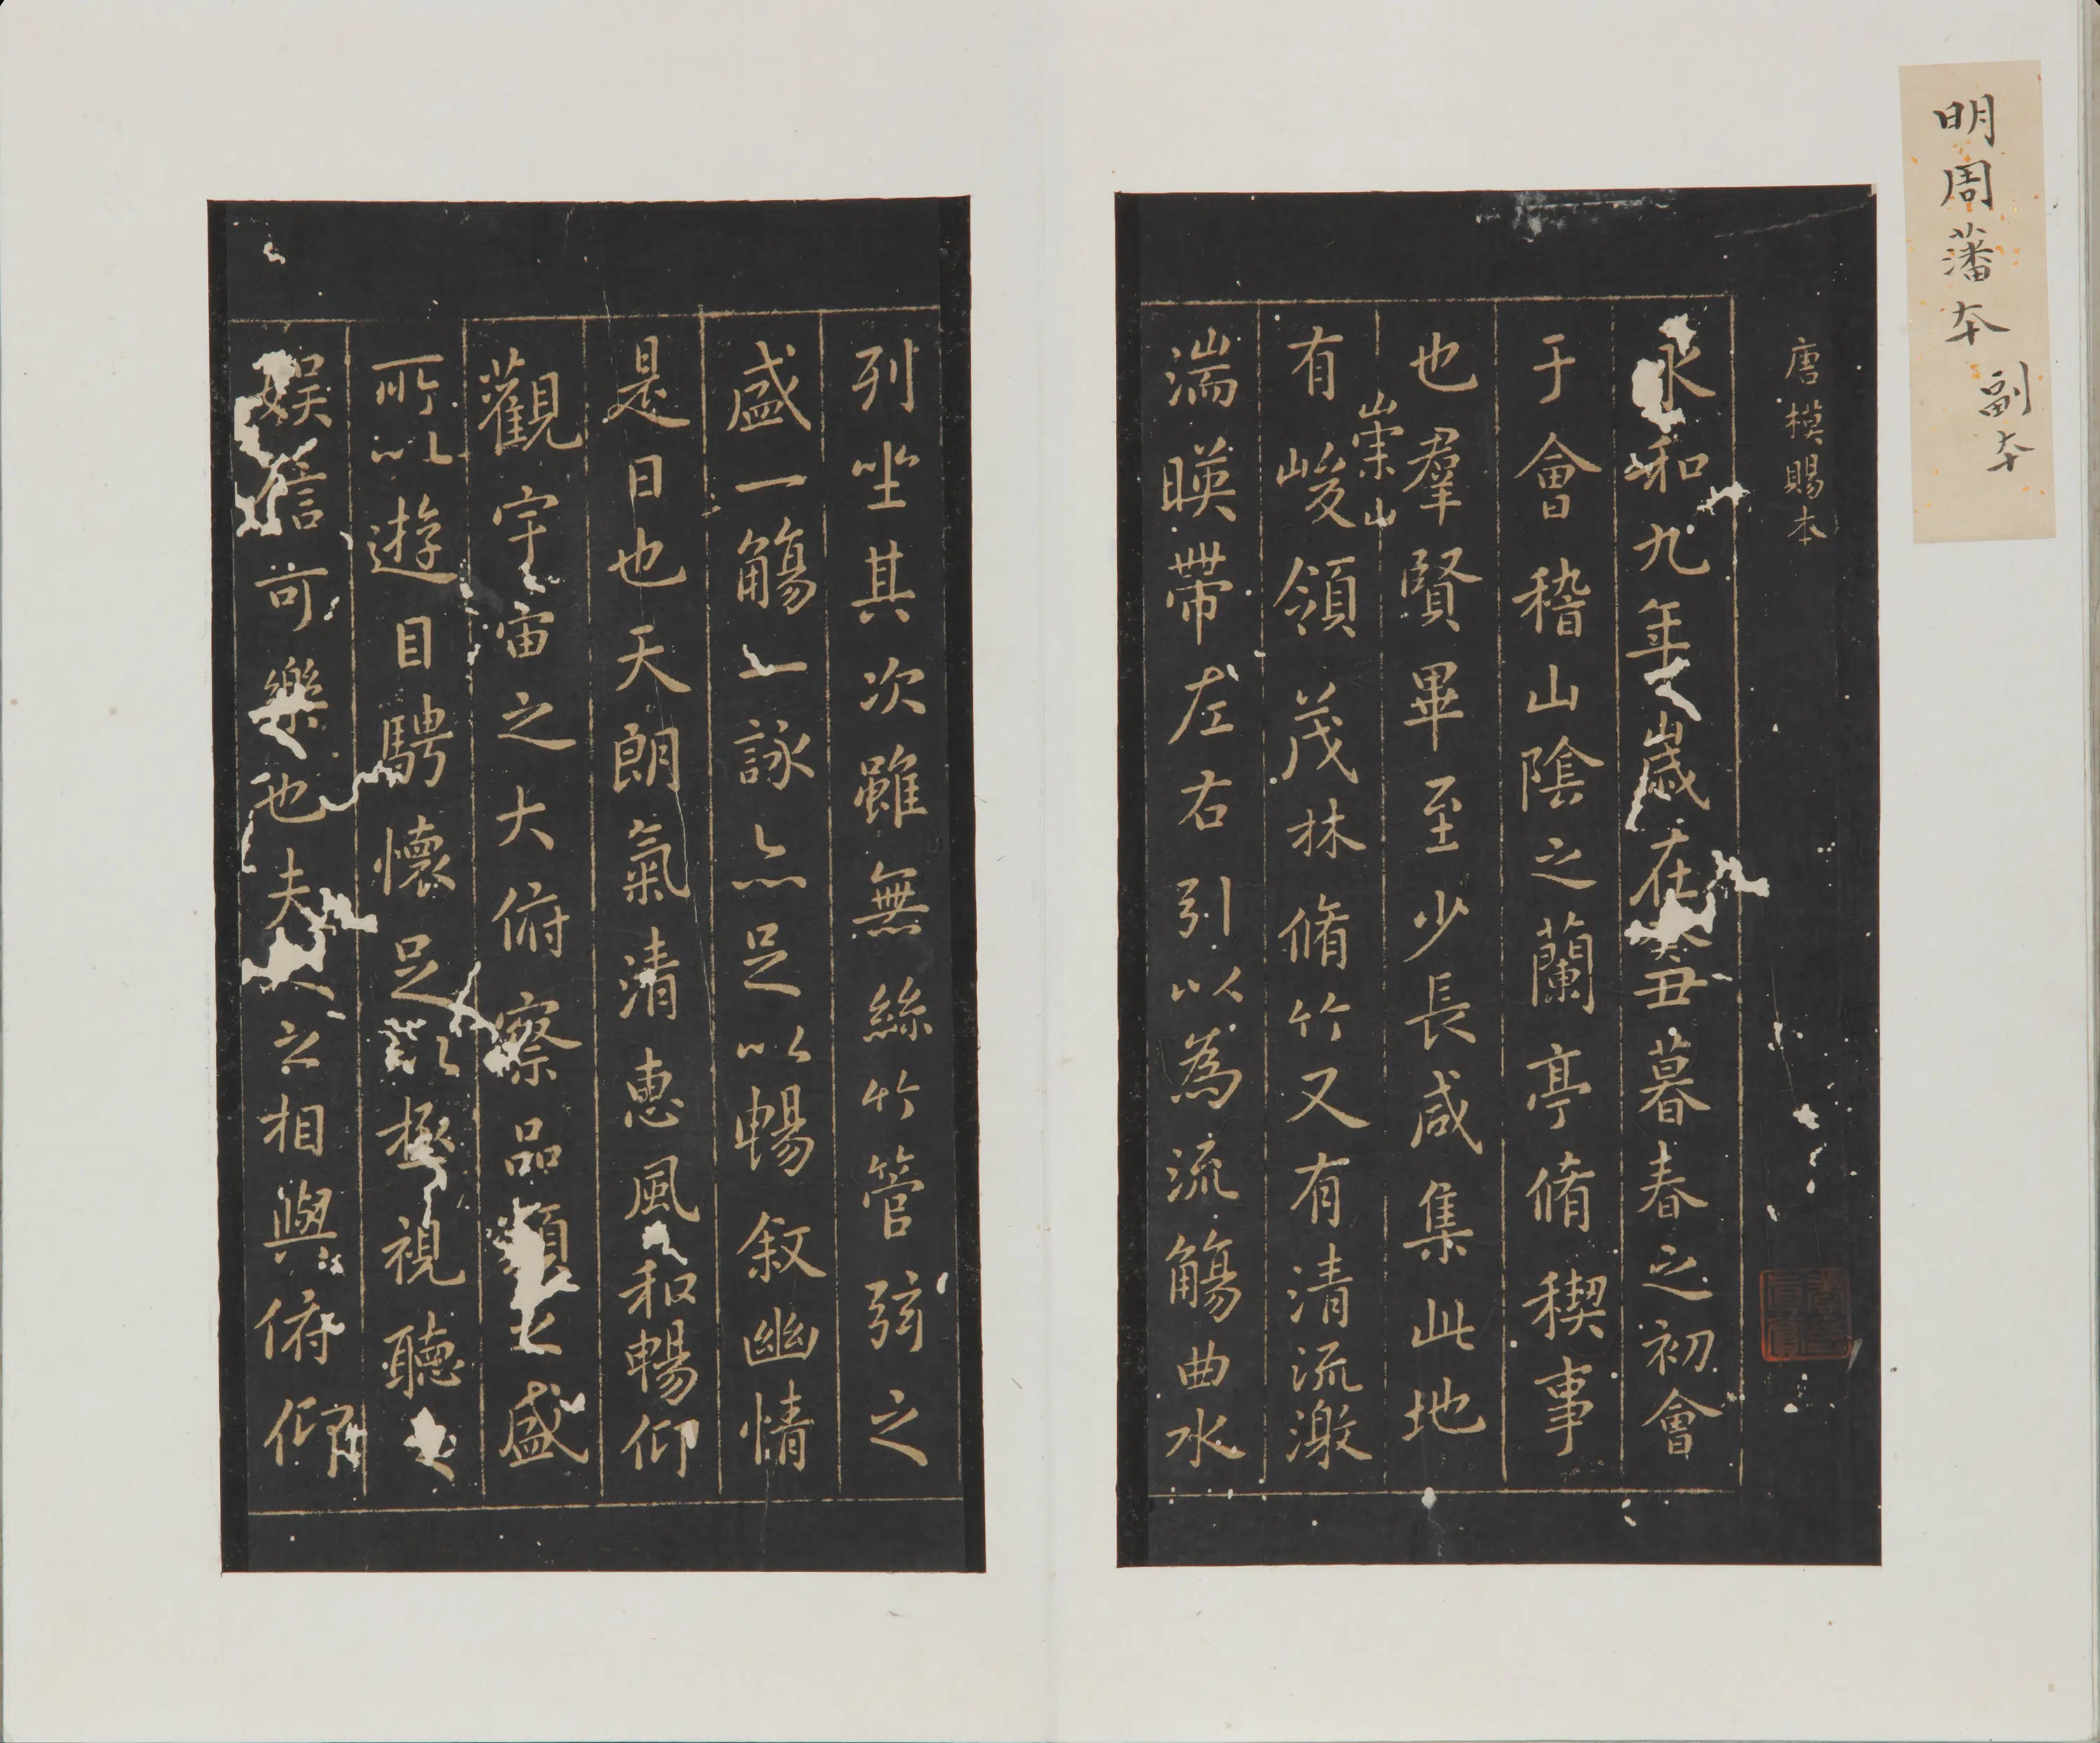 明周藩本
副本
唐模賜本
永和九年歲在癸丑暮春之初會
于會稽山陰之蘭亭脩稧事
也羣賢畢至少長咸集此地
崇山
有峻領茂林脩竹又有清流激
湍暎帶左右引以為流觴曲水
列坐其次雖無絲竹管弦之
盛一觴一詠亦足以暢敘幽情
是日也天朗氣清惠風和暢仰
觀宇宙之大俯察品類之盛
所以遊目騁懷足以極視聽之
娛信可樂也夫人之相與俯仰